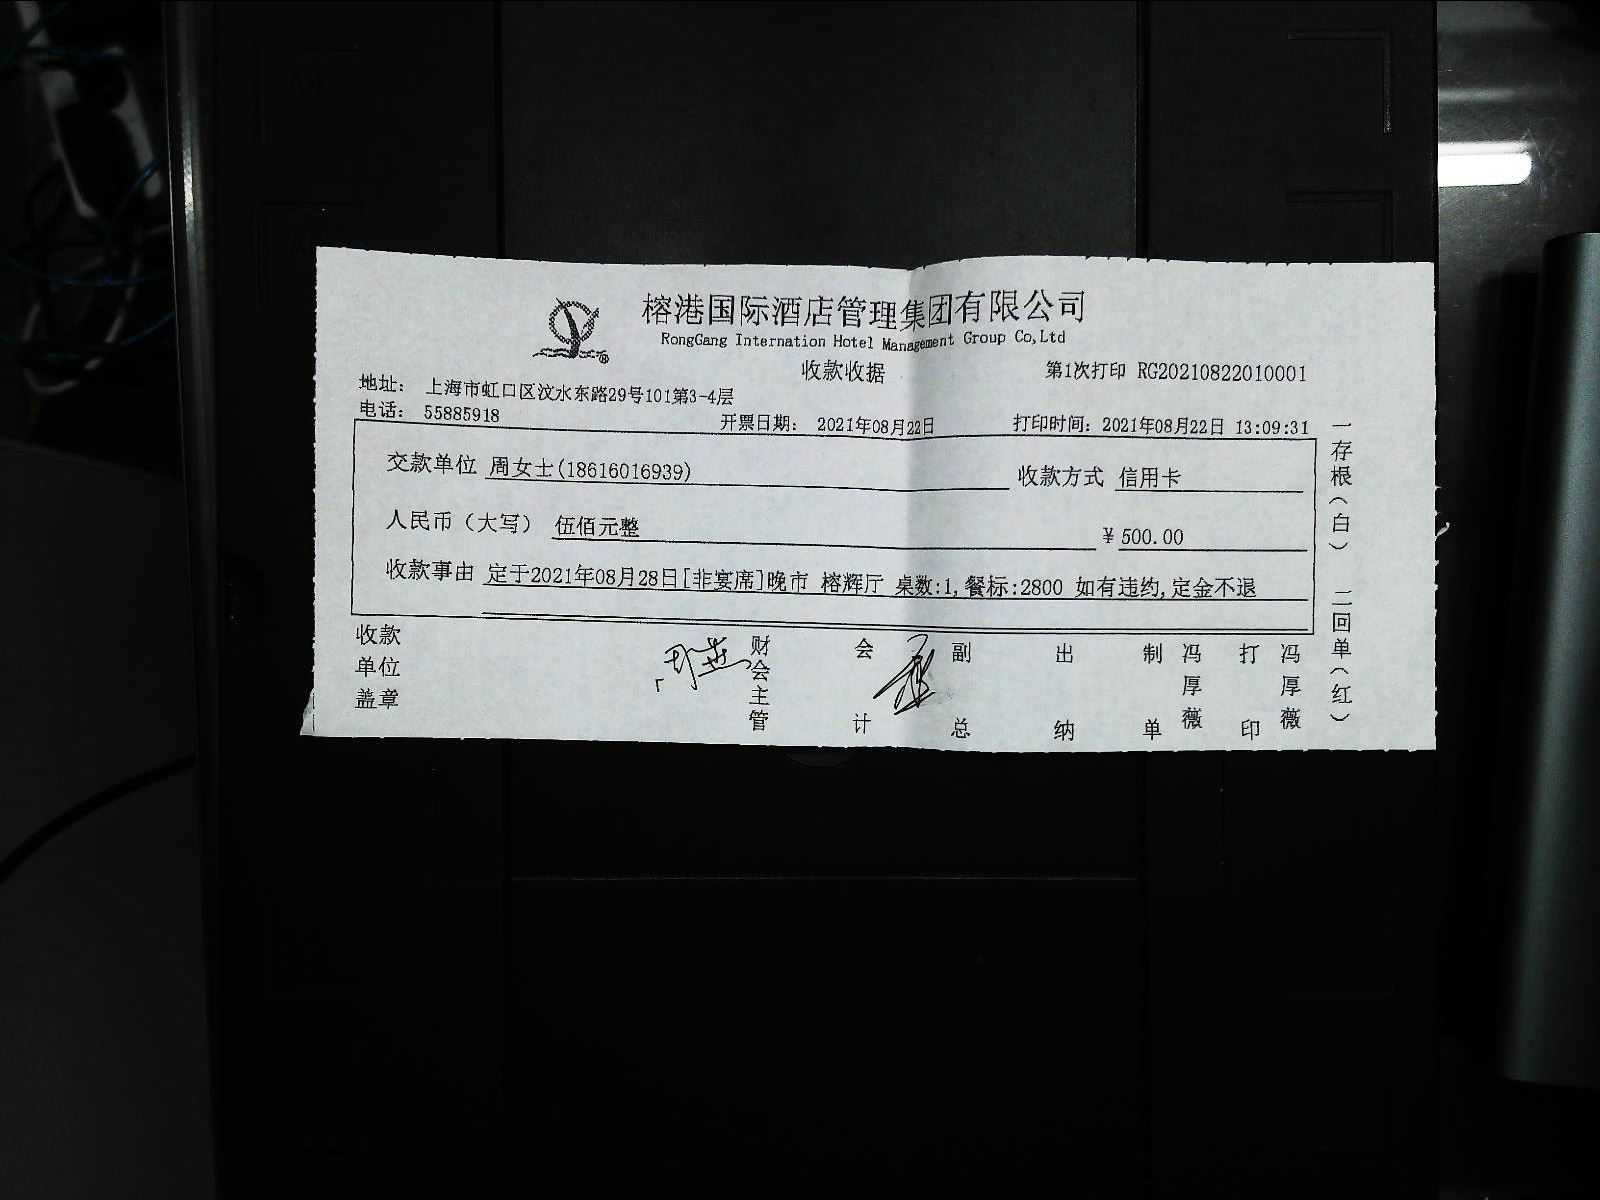 榕港国际酒店管理集团有限公司
RongGang Internation Hotel Management Group Co,Ltd
收款收据
第1次打印 RG20210822010001
地址： 上海市虹口区汶水东路29号101第3-4层
电话： 55885918
开票日期： 2021年08月22日
打印时间：2021年08月22日 13:09:31
交款单位 周女士(18616016939)
收款方式 信用卡
人民币（大写） 伍佰元整
¥500.00
收款事由 定于2021年08月28日[非宴席]晚市 榕辉厅 桌数:1,餐标:2800 如有违约,定金不退
一存根（白） 二回单（红）
收款单位盖章
财会主管
会计
副总
出纳
制单
冯厚薇
打印
冯厚薇